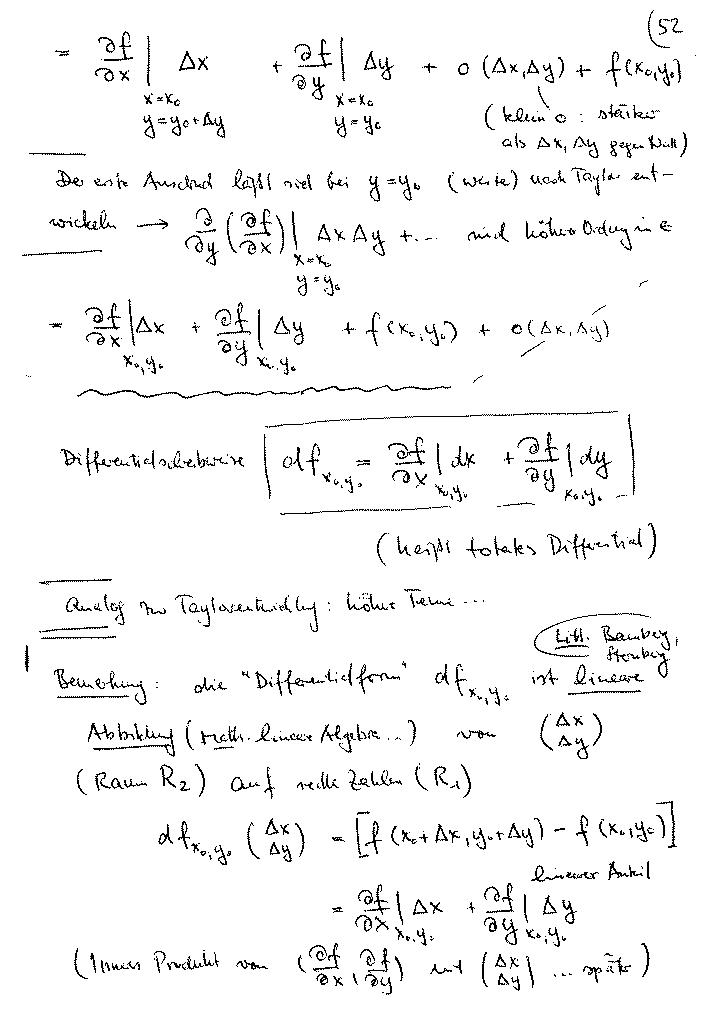 (52
= ∂f/∂x | x=x₀ y=y₀+Δy Δx + ∂f/∂y | x=x₀ y=y₀ Δy + o(Δx,Δy) + f(x₀,y₀)
(klein o : stärker
als Δx, Δy gegen Null)
Der erste Ausdruck läßt sich bei y=y₀ (weiter) nach Taylor ent-
wickeln → ∂/∂y (∂f/∂x) | x=x₀ y=y₀ Δx Δy + ... sind höherer Ordnung in ε
= ∂f/∂x | x₀,y₀ Δx + ∂f/∂y | x₀,y₀ Δy + f(x₀,y₀) + o(Δx,Δy)
Differentialschreibweise df x₀,y₀ = ∂f/∂x | x₀,y₀ dx + ∂f/∂y | x₀,y₀ dy
(heißt totales Differential)
Analog zur Taylorentwicklung : höhere Terme ...
Litt. Bamberg,
Sternberg
Bemerkung : die "Differentialform" df x₀,y₀ ist lineare
Abbildung (math. lineare Algebra ...) von (Δx Δy)
(Raum R₂) auf reelle Zahlen (R₁)
df x₀,y₀ (Δx Δy) = [f(x₀+Δx, y₀+Δy) - f(x₀,y₀)]
linearer Anteil
= ∂f/∂x | x₀,y₀ Δx + ∂f/∂y | x₀,y₀ Δy
(Inneres Produkt von (∂f/∂x, ∂f/∂y) mit (Δx Δy) ... später)